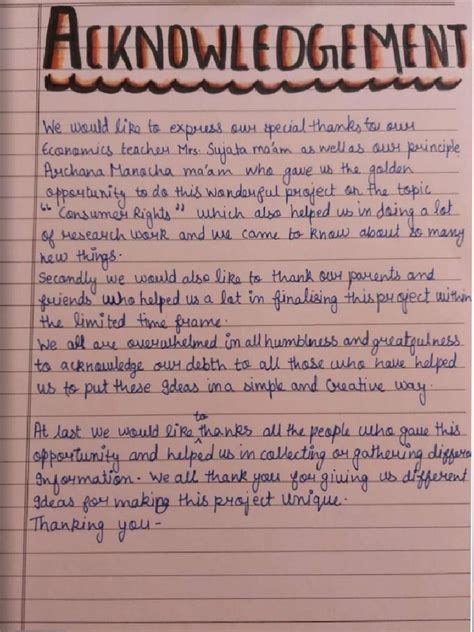 ACKNOWLEDGEMENT
We would like to express our special thanks to our
Economics teacher Mrs. Sujata ma'am as well as our principle
Archana Manocha ma'am who gave us the golden
opportunity to do this wonderful project on the topic
"Consumer Rights" which also helped us in doing a lot
of research work and we came to know about so many
new things.
Secondly we would also like to thank our parents and
friends who helped us a lot in finalizing this project within
the limited time frame.
We all are overwhelmed in all humblness and greatfulness
to acknowledge our debth to all those who have helped
us to put these Ideas in a simple and Creative way.
At last we would like to thanks all the people who gave this
opportunity and helped us in collecting or gathering differen
Information. We all thank you for giving us different
Ideas for making this project Unique.
Thanking you-